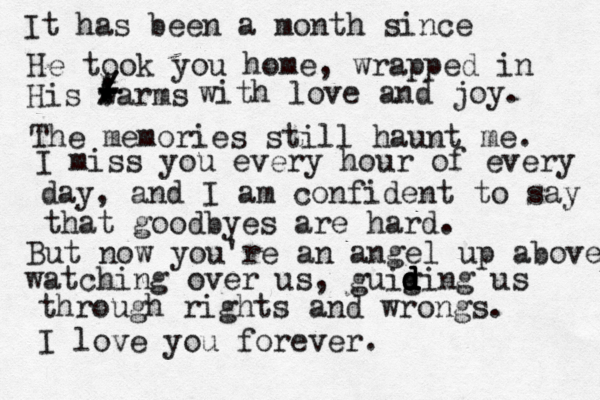 It has been a month since
He took you home, wrapped in
His arms with love and joy.
The memories still haunt me.
I miss you every hour of every
day, and I am confident to say
that goodbyes are hard.
But now you're an angel up above
watching over us, guiding us
through rights and wrongs.
I love you forever.